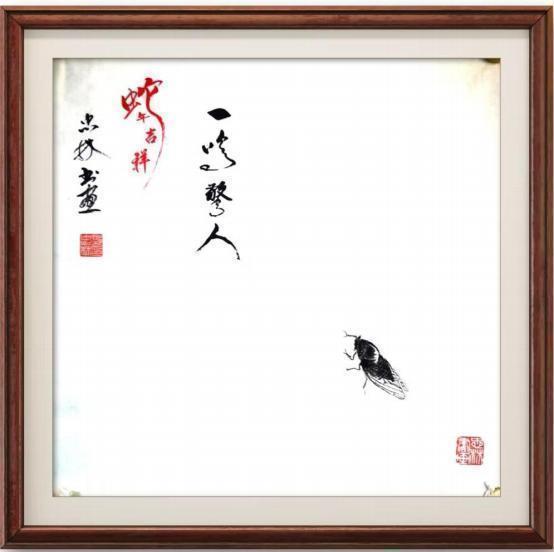 一鸣惊人
蛇年吉祥
忠林书画